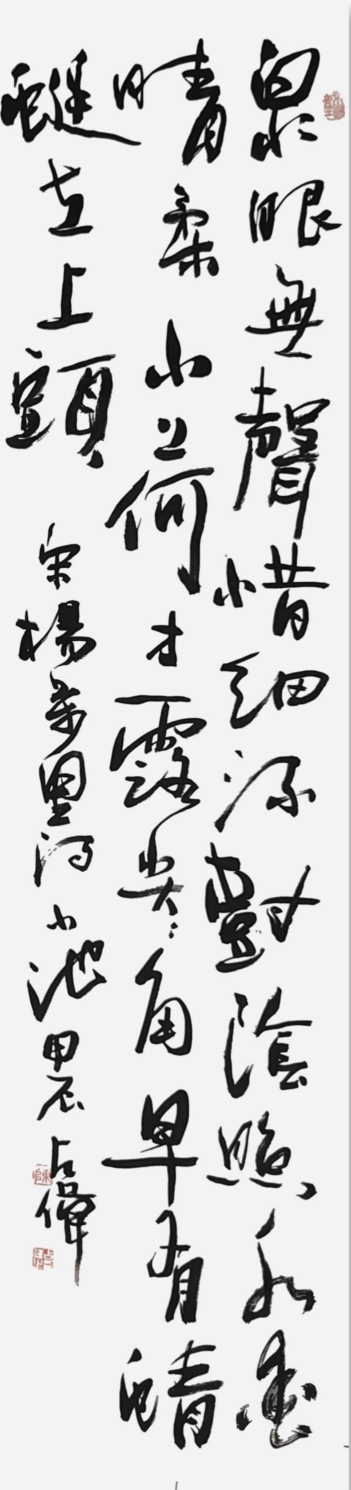 泉眼無聲惜細流樹陰照水愛
晴柔小荷才露尖〻角早有蜻
蜓立上頭 宋楊萬里詩小池甲辰占偉